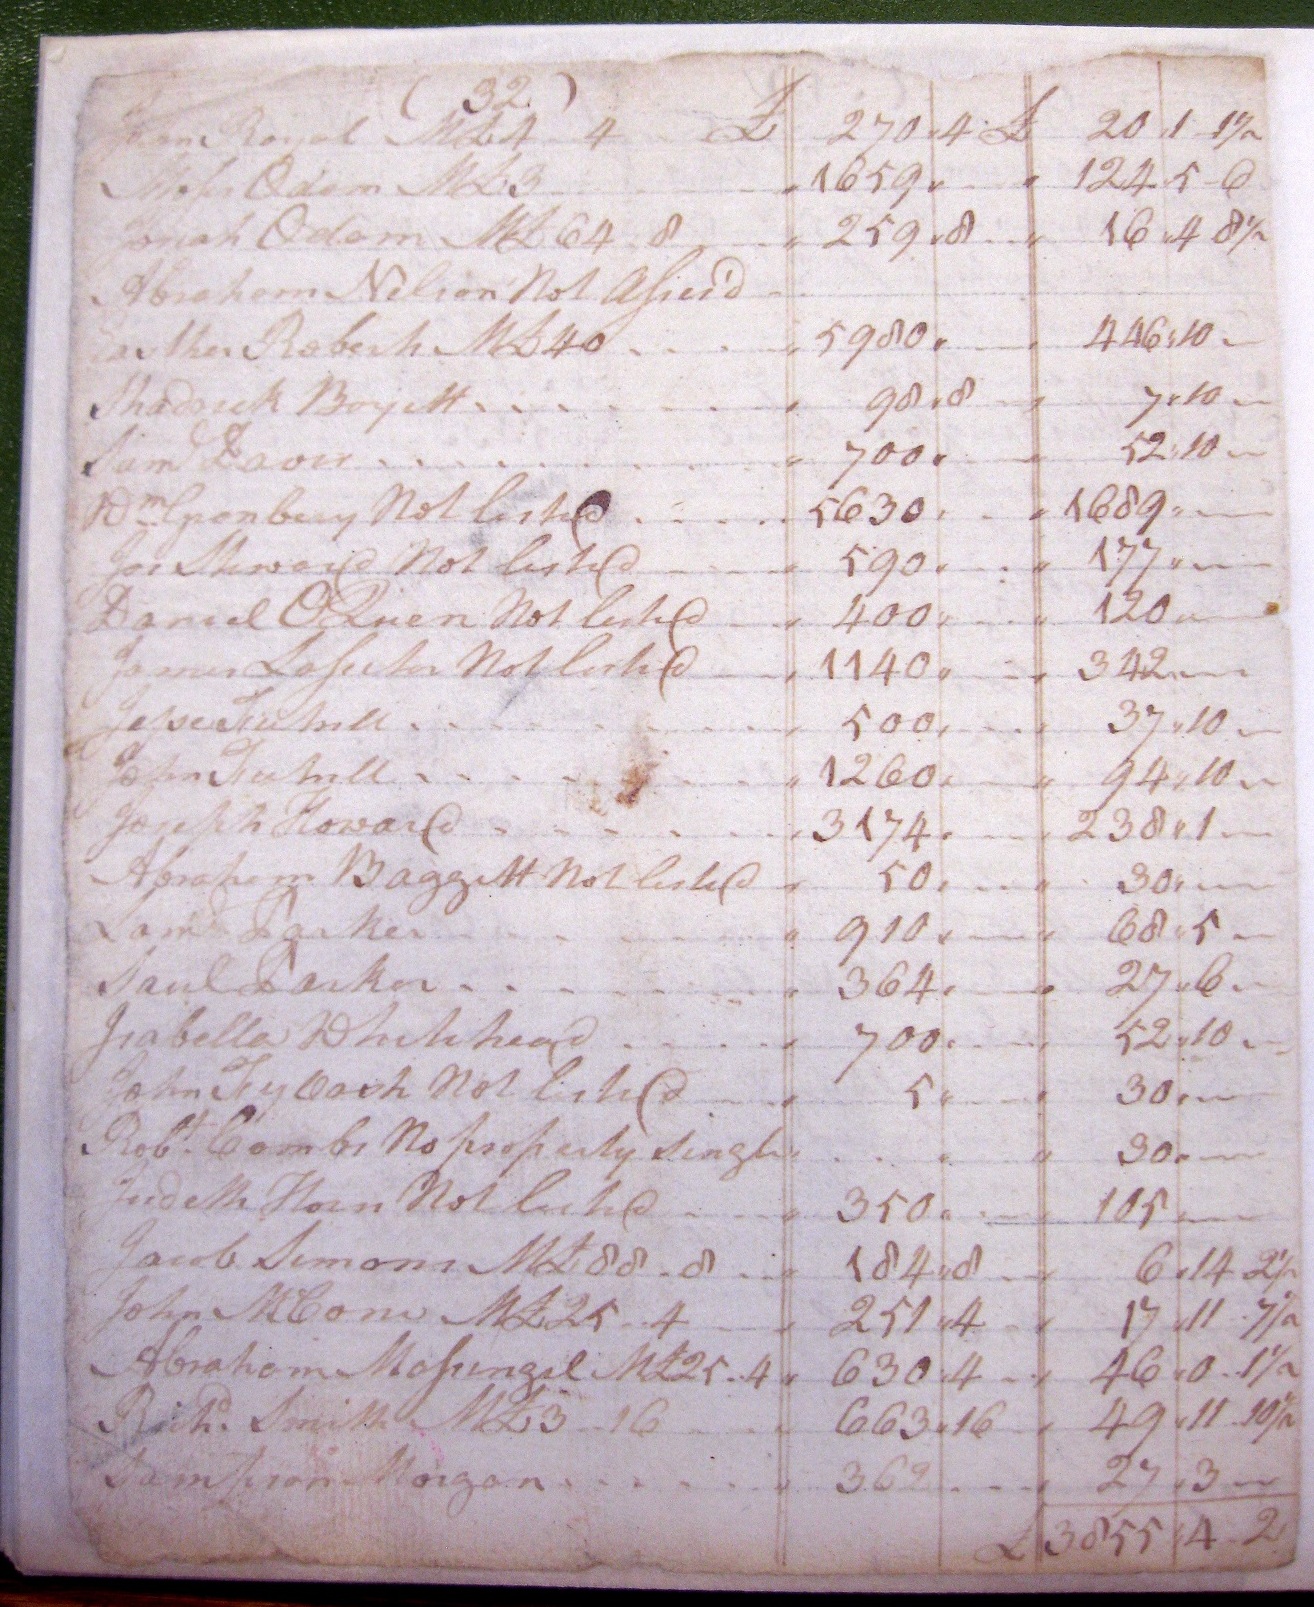 ( 32 )
Royal M£4 4 £ 270 " 4 £ 20 1 1½
Odom M£3 " 1659 " " 124 " 5 - 6
Jonah Odom M£64 8 " 259 " 8 " 16 " 4 8½
Abraham Nelson Not Assess'd
Roberts M£40 " 5980 " " 446 " 10
Shadrick Boyett " 98 " 8 " 7 " 10
Sam.l " 700 " " 52 " 10
Wm Granbury Not listed " 5630 " " 1689 "
Jos Steward Not listed " 590 " " 177 "
Daniel OQuen Not listed " 400 " " 120 "
James Lassiter Not listed " 1140 " " 342 "
Jesse " 500 " " 37 " 10
John " 1260 " " 94 " 10
Joseph Howard " 3174 " " 238 " 1
Abraham Baggett Not listed " 50 " " 30 "
Sam.l Parker " 910 " " 68 " 5
Saul Parker " 364 " " 27 " 6
Isabella Whitehead " 700 " " 52 " 10
John Not listed " 5 " " 30 "
Robt. Combs No property single " " " 30 "
Judeth Horn Not listed " 350 " " 105
Jacob Simons M£88 - 8 " 184 " 8 " 6 " 14 2½
John M£25 - 4 " 251 " 4 " 17 " 11 7½
Abraham Massingil M£25 - 4 " 630 " 4 " 46 " 0 1½
Richd. Smith M£3 - 16 " 663 " 16 " 49 " 11 10½
Sampson Morgan " 362 " 27 " 3
£ 3855 " 4 - 2